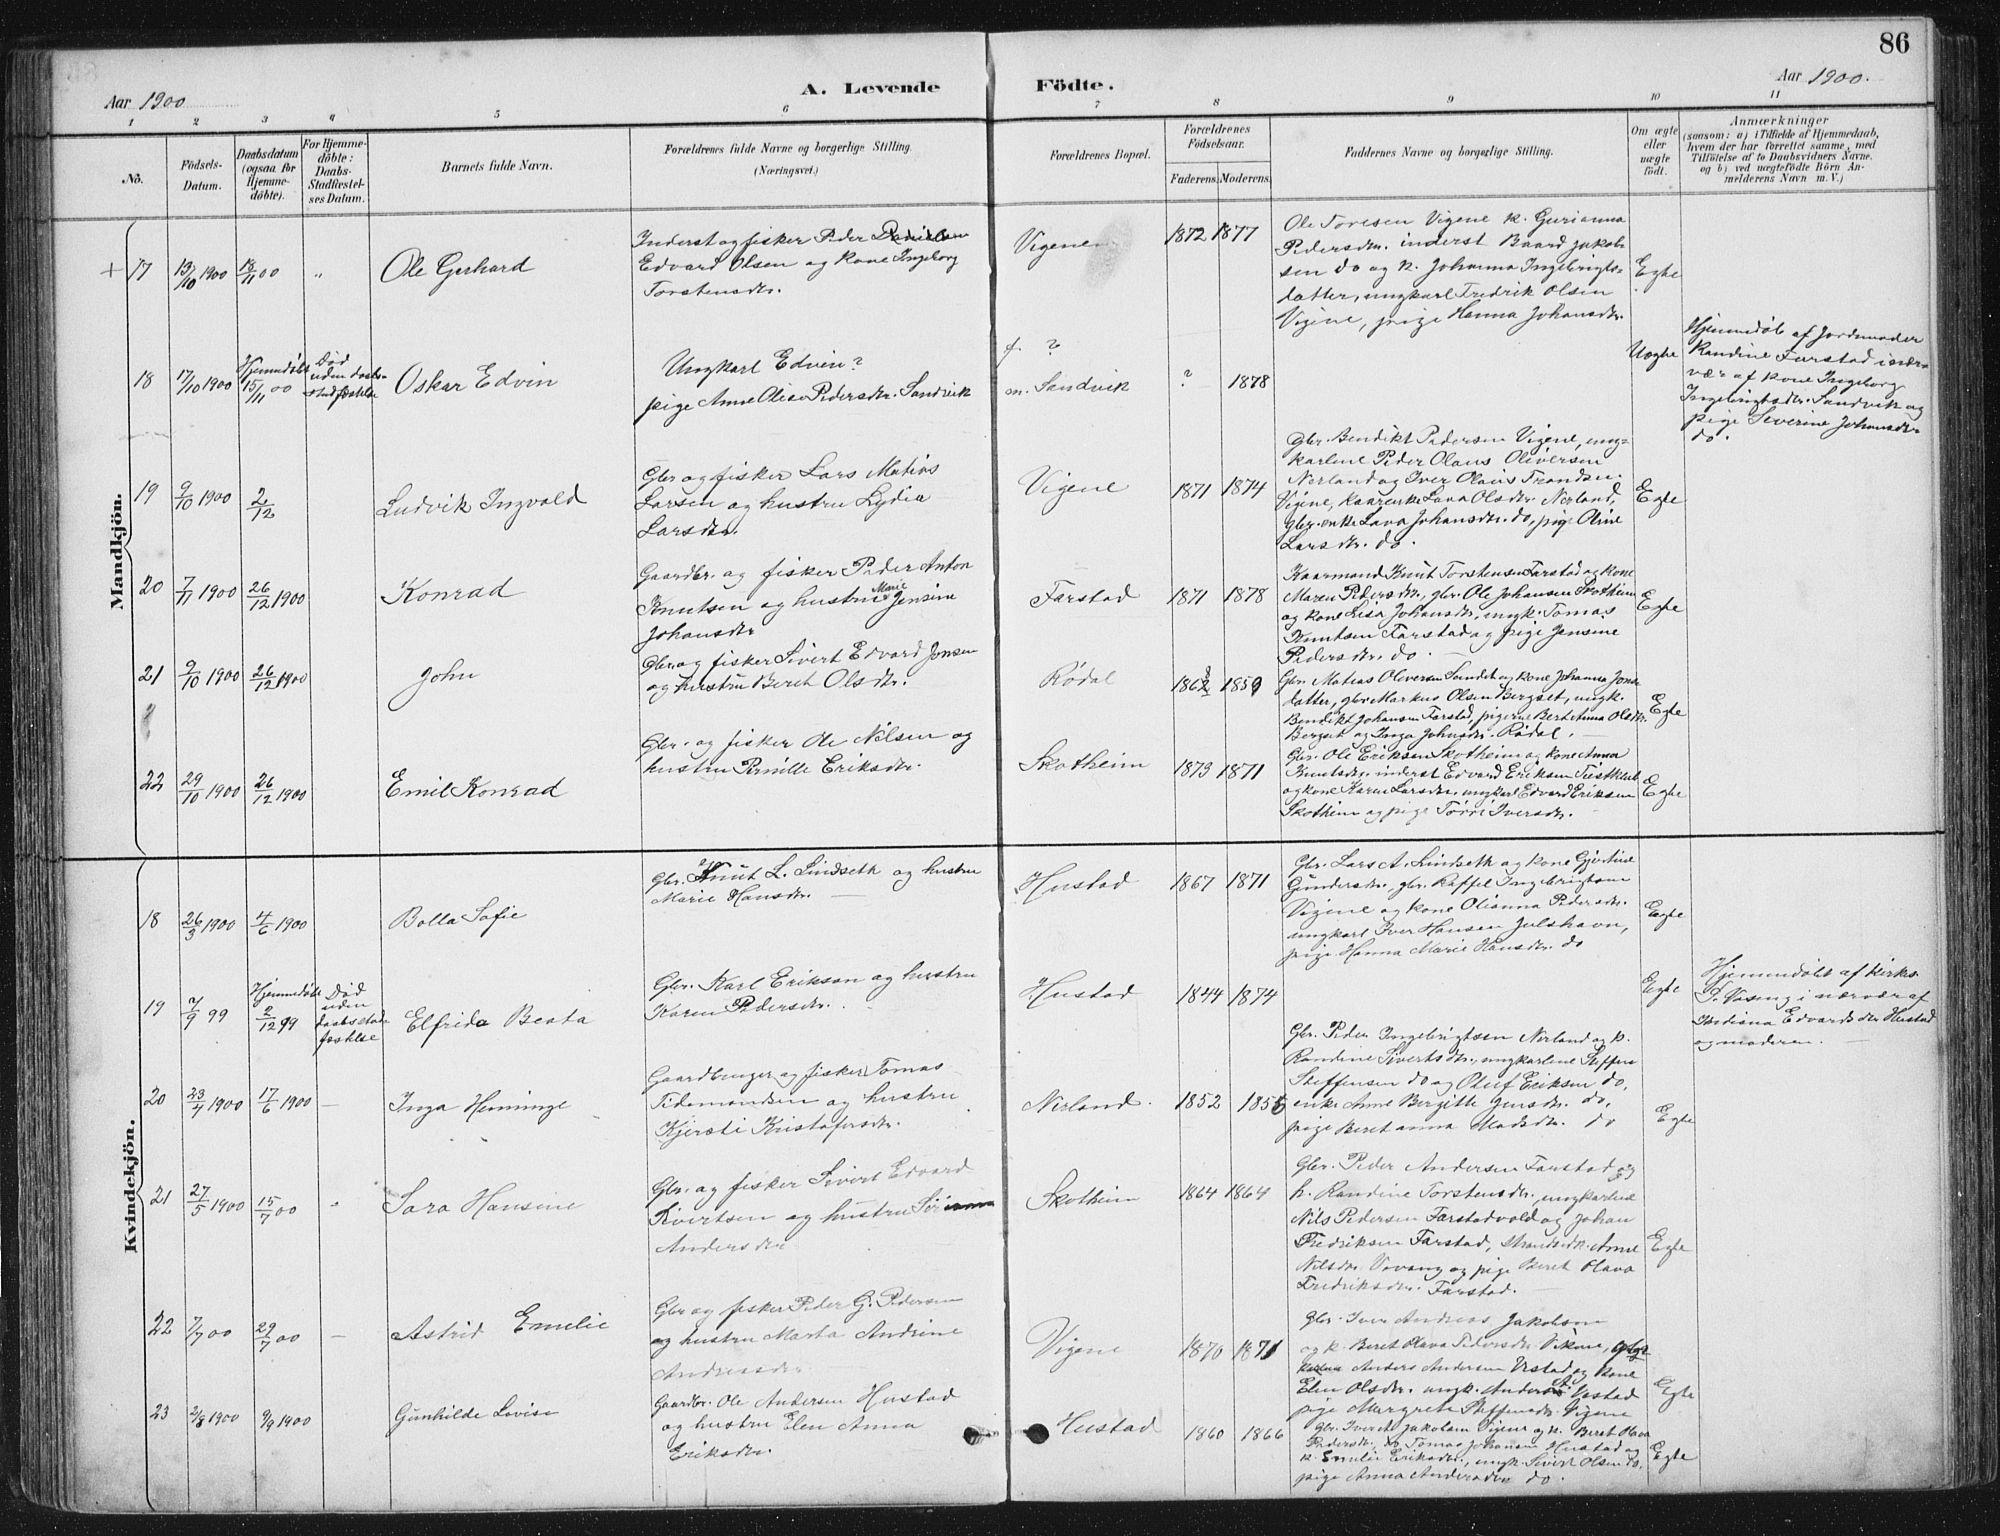 86
Aar 1900
A. Levende
Födte.
Aar 1900.
1 2 3 4 5 6 7 8 9 10 11
No.
Födsels-
Datum.
Daabsdatum
(ogsaa for
Hjemme-
döbte).
For Hjemme-
döbte:
Daabs-
Stadfæstel-
ses Datum.
Barnets fulde Navn.
Forældrenes fulde Navne og borgerlige Stilling.
(Næringsvei.)
Forældrenes Bopæl.
Forældrenes
Födselsaar.
Faderens. Moderens.
Faddernes Navne og borgerlige Stilling.
Om ægte
eller
uægte
födt.
Anmærkninger
(saasom: a) i Tilfælde af Hjemmedaab,
hvem der har forrettet samme, med
Tilföielse af to Daabsvidners Navne,
og b) ved uægtefödte Börn An-
melderens Navn m. V.)
Mandkjön.
+ 17 13/10 1900 18/11 00 "
Ole Gerhard
Inderst og fisker Peder
Edvard Olsen og kone Ingeborg
Torstensdtr.
Vigene
1872 1877
Ole Toresen Vigene k. Gurianna
Pedersdtr. inderst Baard Jakob-
sen do og k. Johanna Ingebrigts-
datter, ungkarl Fredrik Olsen
Vigene, pige Hanna Johansdtr.
Egte
18 17/10 1900 Hjemmedøbt 15/11 00
Død
uden daabs-
stadfæstelse
Oskar Edvin
Ungkarl Edvin?
pige Anne Olise Pedersdtr. Sandvik
f. ?
m. Sandvik
? 1878
Uegte
Hjemmedøb af Jordemoder
Randine Farstad i nær-
vær af kone Ingeborg
Ingebrigtsdtr. Sandvik og
pige Severine Johansdtr.
do.
19 9/10 1900 2/12
Ludvik Ingvald
Gbr og fisker Lars Matias
Larsen og hustru Lydia
Larsdtr.
Vigene
1871 1874
Gbr. Bendikt Pedersen Vigene, ung-
karlene Peder Olaus Oliversen
Nerland og Iver Olaus Trondsen
Vigene, kaarenke Lava Olsdtr. Nerland,
gbr. enke Lava Johansdtr. do, pige Oline
Larsdtr. do.
Egte
20 7/11 1900 26/12 1900
Konrad
Gaardbr. og fisker Peder Anton
Knutsen og hustru Marie Jensine
Johansdtr
Farstad
1871 1878
Kaarmand Knut Torstensen Farstad og kone
Maren Pedersdtr., gbr. Ole Johansen Skotheim
og kone Lisa Johansdtr., ungk. Tomas
Knutsen Farstad og pige Jensine
Pedersdtr. do.
Egte
21 9/10 1900 26/12 1900
John
Gbr. og fisker Sivert Edvard Jonsen
og hustru Beret Olsdtr.
Rødal
1862 1859
Gbr. Matias Oliversen Sandet og kone Johanna Jons-
datter, gbr Markus Olsen Bergset, ungk.
Bendikt Johansen Farstad, pigerne Beret Anna Olsdtr.
Bergset og Inga Johnsdtr. Rødal.
Egte
22 29/10 1900 26/12 1900
Emil Konrad
Gbr. og fisker Ole Nilsen og
hustru Pernille Eriksdtr.
Skotheim
1873 1871
Gbr. Ole Eriksen Skotheim og kone Anna
Knutsdtr. inderst Edvard Eriksen
og kone Karen Larsdtr. ungkarl Edvard Eriksen
Skotheim og pige Iversdtr.
Egte
Kvindekjön.
18 26/3 1900 4/6 1900
Bolla Sofie
Gbr. Knut L. Lindseth og hustru
Marie Hansdtr.
Hustad
1867 1871
Gbr. Lars A. Lindseth og kone Gjertine
Gundersdtr., gbr. Raffel Ingebrigtsen
Vigene og kone Olianna Pedersdtr.
ungkarl Iver Hansen Julshavn,
pige Hanna Marie Hansdtr. do
Egte
19 7/9 99 Hjemmedøbt 2/12 99
Død
uden
daabsstad-
fæstelse
Elfrida Beata
Gbr. Karl Erikson og hustru
Karen Pedersdtr.
Hustad
1844 1874
Egte
Hjemmedøbt af Kirkes.
P. Vaseng i nærvær af
Indiana Edvardsdtr Hustad
og moderen.
20 23/4 1900 17/6 1900 –
Inga Heminge
Gaardbruger og fisker Tomas
Tidemandsen og hustru
Kjersti Kristofersdtr.
Nerland.
1852 1856
Gbr. Peder Ingebrigtsen Nerland og k.
Randine Sivertsdtr., ungkarlene Steffen
Steffensen do og Oluf Eriksen do,
enke Anne Bergitte Jensdtr. do,
pige Beret anna Madsdtr. do
Egte
21 27/5 1900 15/7 00 "
Sara Hansine
Gbr. og fisker Sivert Edvard
Sivertsen og hustru Sørianna
Andersdtr
Skotheim
1864 1864
Gbr. Peder Andersen Farstad og
h. Randine Torstensdtr., ungkarlene
Nils Pedersen Farstadvold og Johan
Fredriksen Farstad, Anne
Nilsdtr. Vevang og pige Beret Olava
Fredriksdtr. Farstad.
Egte
22 7/7 00 29/7 00 –
Astrid Emelie
Gbr og fisker Peder G. Pedersen
og hustru Marta Andrine
Andreasdtr
Vigene
1870 1871
Gbr. Iver Andreas Jakobsen
og k. Beret Olava Pedersdtr. Vikene,
Anders Andersen Urstad og kone
Elen Olsdtr. ungk. Anders A. Urstad
pige Margrete Steffensdtr. Vigene
Egte
23 2/8 1900 9/9 1900
Gunhilde Lovise
Gaardbr. Ole Andersen Hustad
og hustru Elen Anna
Eriksdtr.
Hustad
1860 1866
Gbr. Iver A. Jakobsen Vigene og k. Beret Olava
Pedersdtr. do Tomas Johansen Hustad og
k. Emelie Eriksdtr., ungk. Sivert Olsen do,
pige Anna Andersdtr do.
Egte